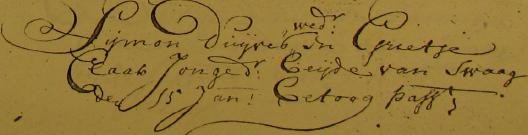 Sijmon Duijves, wedr. En Grietje
Claas Jonged. Beijde van Swaag
den 15 Jan. Betoog pass